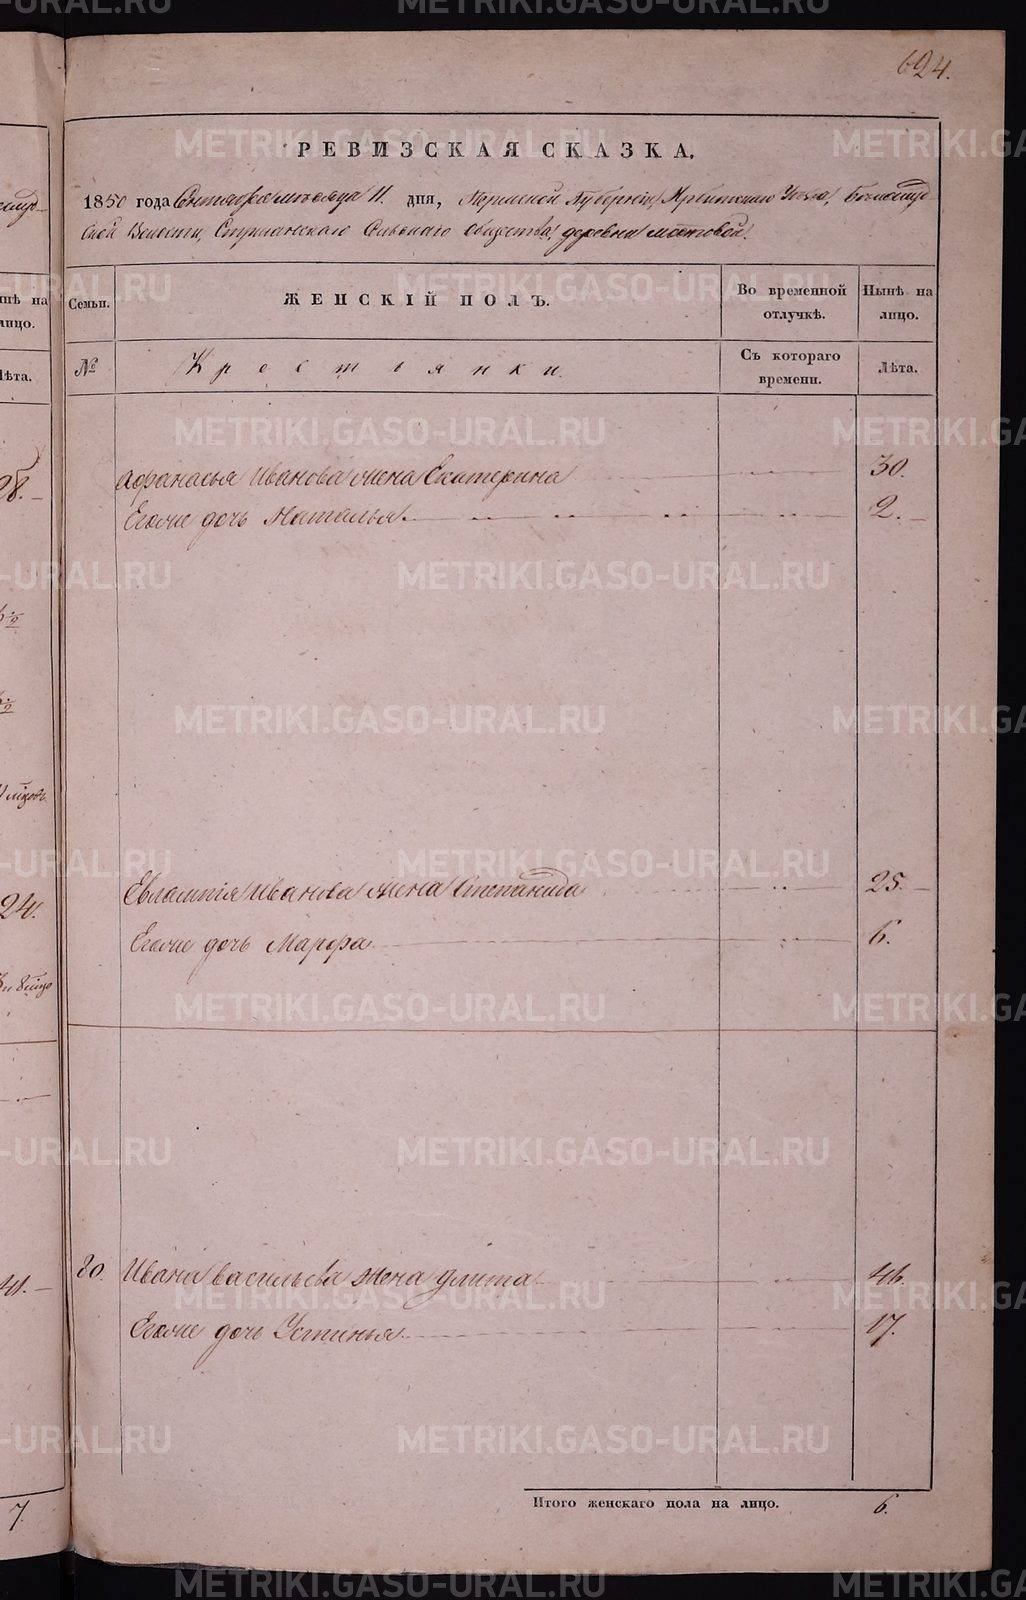 624.
РЕВИЗСКАЯ СКАЗКА.
1850 года Сентября месяца 11. дня, Пермской Губернiи, Ирбитскаго Уѣзда,
Волости, Сельскаго Общества, деревни Мостовой.
Семьи.
ЖЕНСКIЙ ПОЛЪ.
Во временной отлучкѣ.
Нынѣ на лицо.
№
Крестьянки.
Съ котораго времени.
Лѣта.
Афанасья Иванова жена Екатерина 30.
Егоже дочь Наталья. 2.
Евлампiя Иванова жена Степанида 25.
Егоже дочь Марфа. 6.
20. Ивана Васильева жена Улита 46.
Егоже дочь Устинья. 17.
Итого женскаго пола на лицо. 6.
нѣ на
лицо.
Лѣта.
28.
24.
41.
7.
METRIKI.GASO-URAL.RU